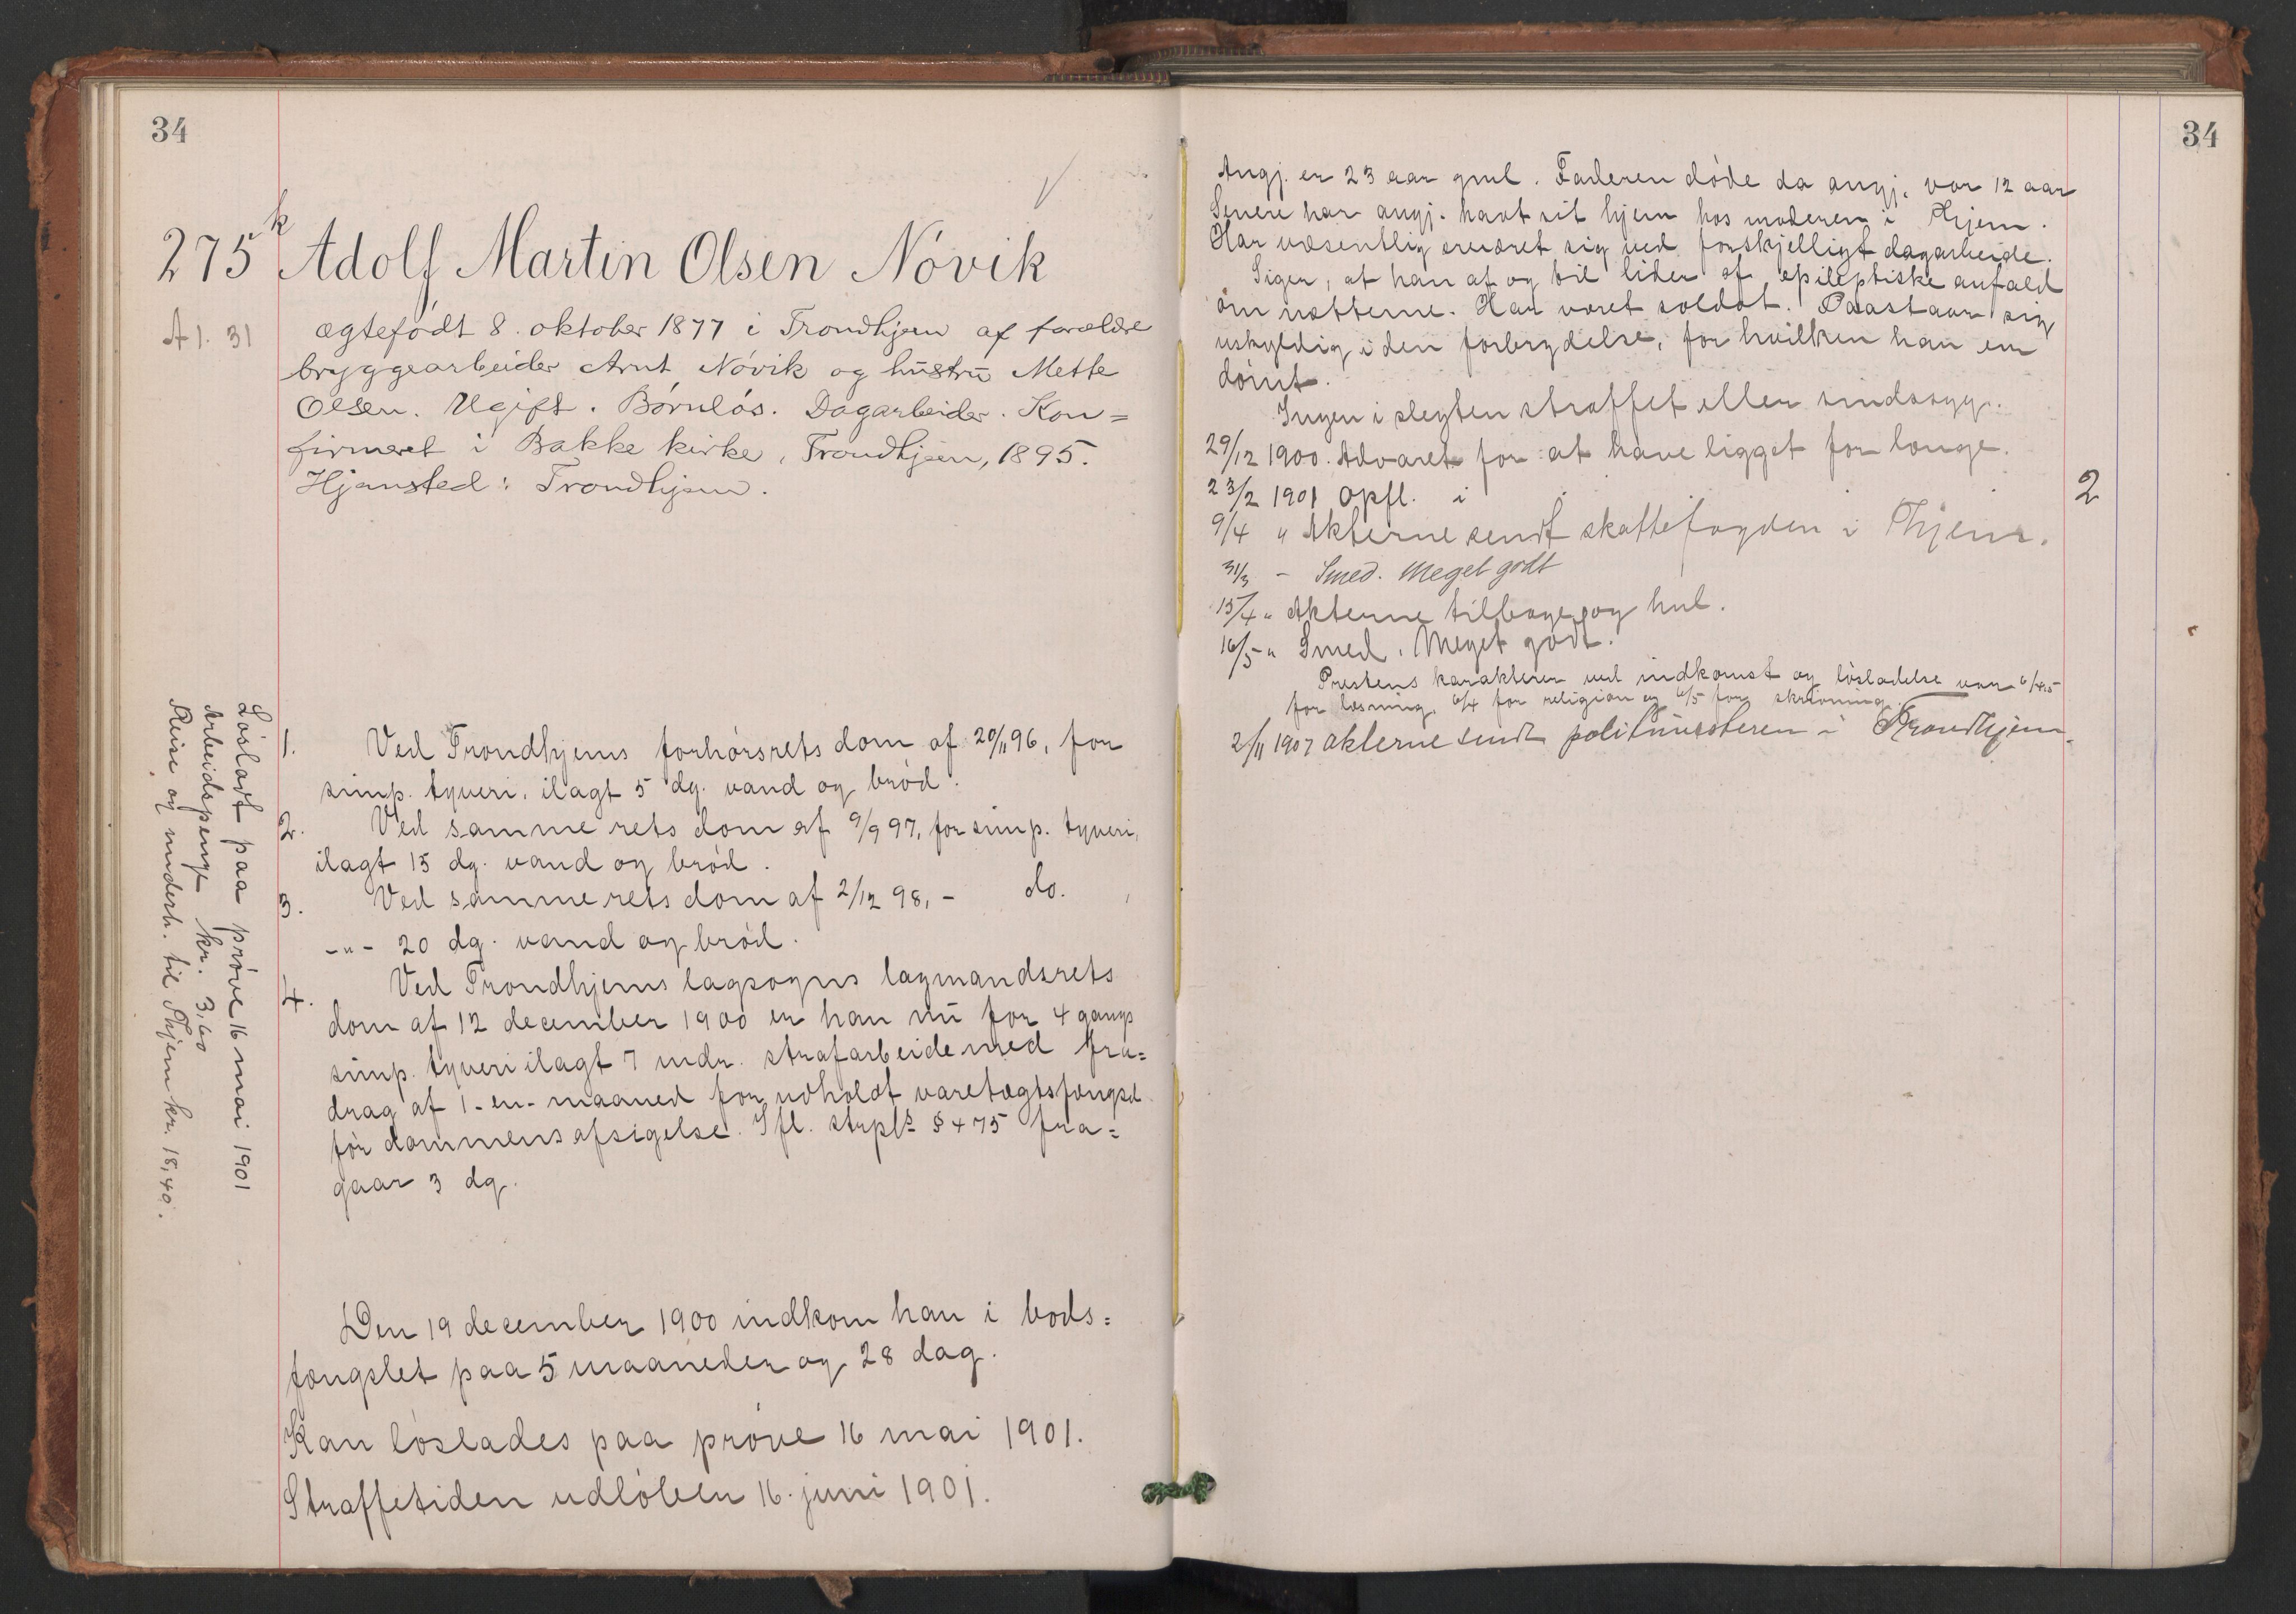 34
275k Adolf Martin Olsen Nóvik
A1. 31
ægtefödt 8. oktober 1877 i Trondhjem af forældre
bryggearbeider Arnt Nóvik og hustru Mette
Olsen. Ugift. Bórnlós. Dagarbeider. Kon=
firmeret i Bakke kirke, Trondhjem, 1895.
Hjemsted: Trondhjem.
1. Ved Trondhjems forhórsrets dom af 20/11 96, for
simp. tyveri, ilagt 5 dg. vand og bród.
2. Ved samme rets dom af 9/9 97, for simp. tyveri,
ilagt 15 dg. vand og bród.
3. Ved samme rets dom af 2/12 98, - do.
-"- 20 dg. vand og bród.
4. Ved Trondhjems lagsogns lagmandsrets
dom af 12 december 1900 er han nu for 4 gangs
simp. tyveri ilagt 7 mdr. strafarbeide med fra=
drag af 1-en-maaned for udholdt varetægtsfængsel
för dommens afsigelse. Ifl. strpls § 475 fra=
gaar 3 dg.
Den 19 december 1900 indkom han i bods=
fængslet paa 5 maaneder og 28 dag.
Kan lóslades paa próve 16 mai 1901.
Straffetiden udlóben 16. juni 1901.
Lósladt paa próve 16 mai 1901
Arbeidspenge kr. 3,60
Reise og underh. til Thjem kr. 18,40.
34
Angj. er 23 aar gml. Faderen dóde da angj. var 12 aar
Senere har angj. havt sit hjem hos moderen i Thjem.
Har væsentlig ernæret sig ved forskjelligt dagarbeide.
Siger, at han af og til lider af epileptiske anfald
om nætterne. Har været soldat. Paastaar sig
uskyldig i den forbrydelse, for hvilken han er
dómt.
Ingen i slegten straffet eller sindssyg.
29/12 1900. Advaret for at have ligget for længe.
23/2 1901 Opfl. i 2
9/4 " Akterne sendt skattefogden i Thjem.
31/3 - Smed. Meget godt
15/4 " Akterne tilbage og hul.
16/5 " Smed. Meget godt.
Prestens karakterer ved indkomst og lösladelse var 6/4,5
for læsning, 6/4 for religion og 6/5 for skrivning.
2/11 1907 akterne sendt politimesteren i Trondhjem.